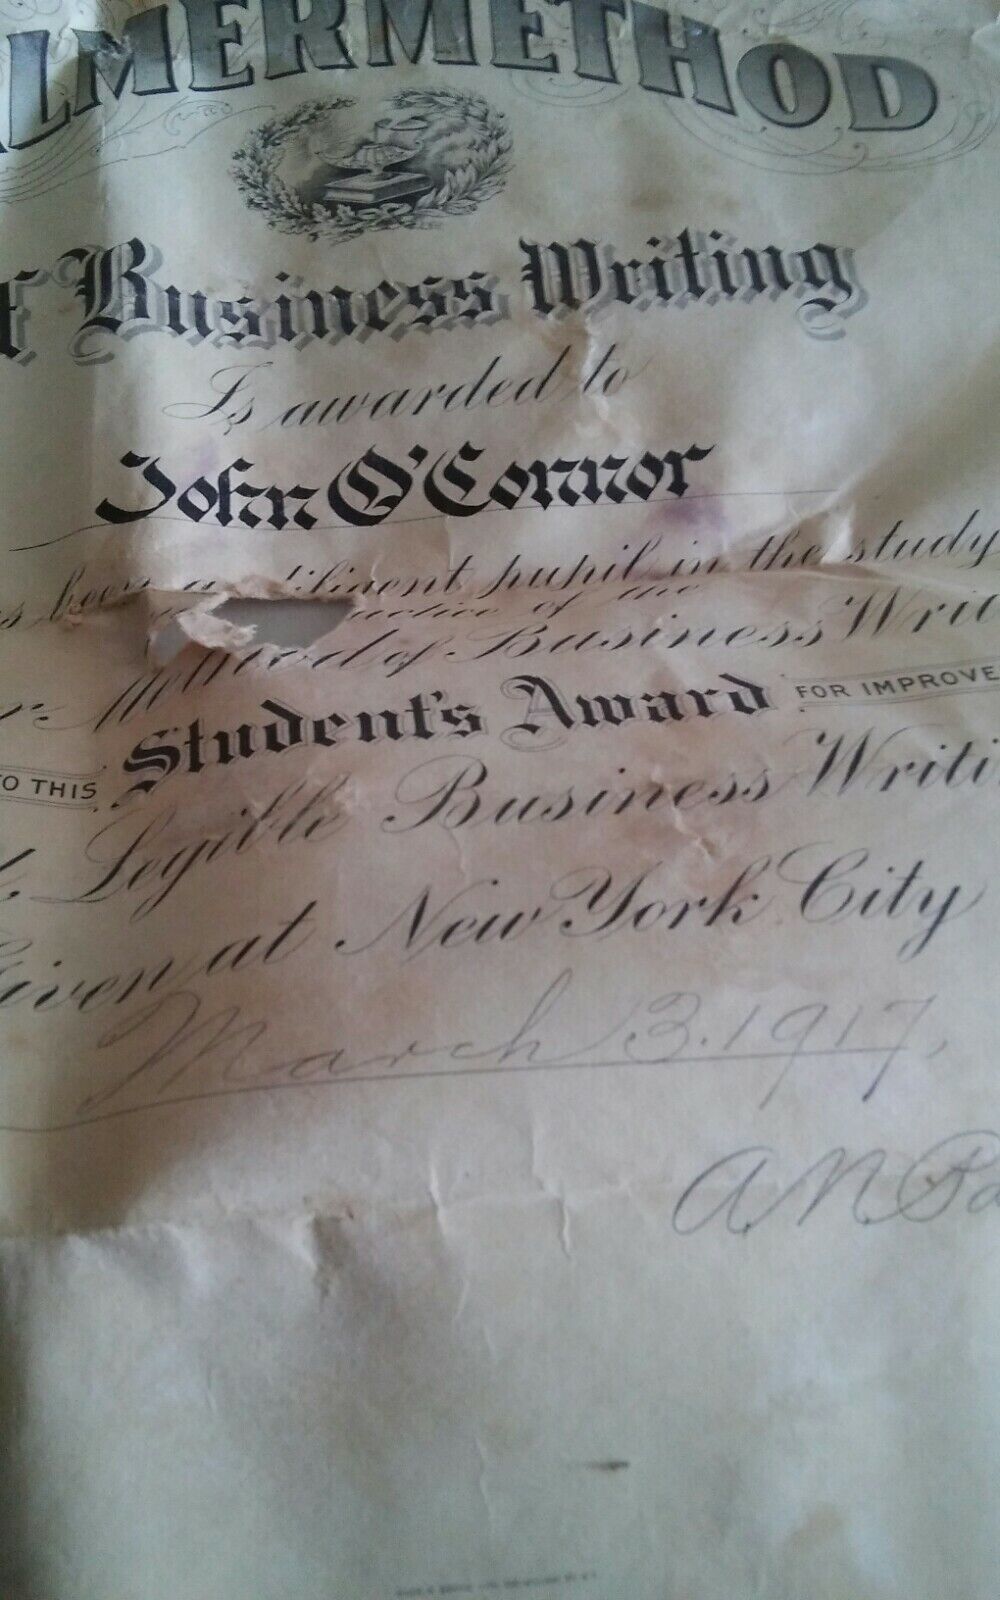 LMERMETHOD
f Business Writing
Is awarded to
John O'Connor
s been a diligent pupil in the study
actice of the
r Method of Business Writ
TO THIS Student's Award FOR IMPROVE
Legible Business Writi
Given at New York City
March 3. 1917,
A N Pa